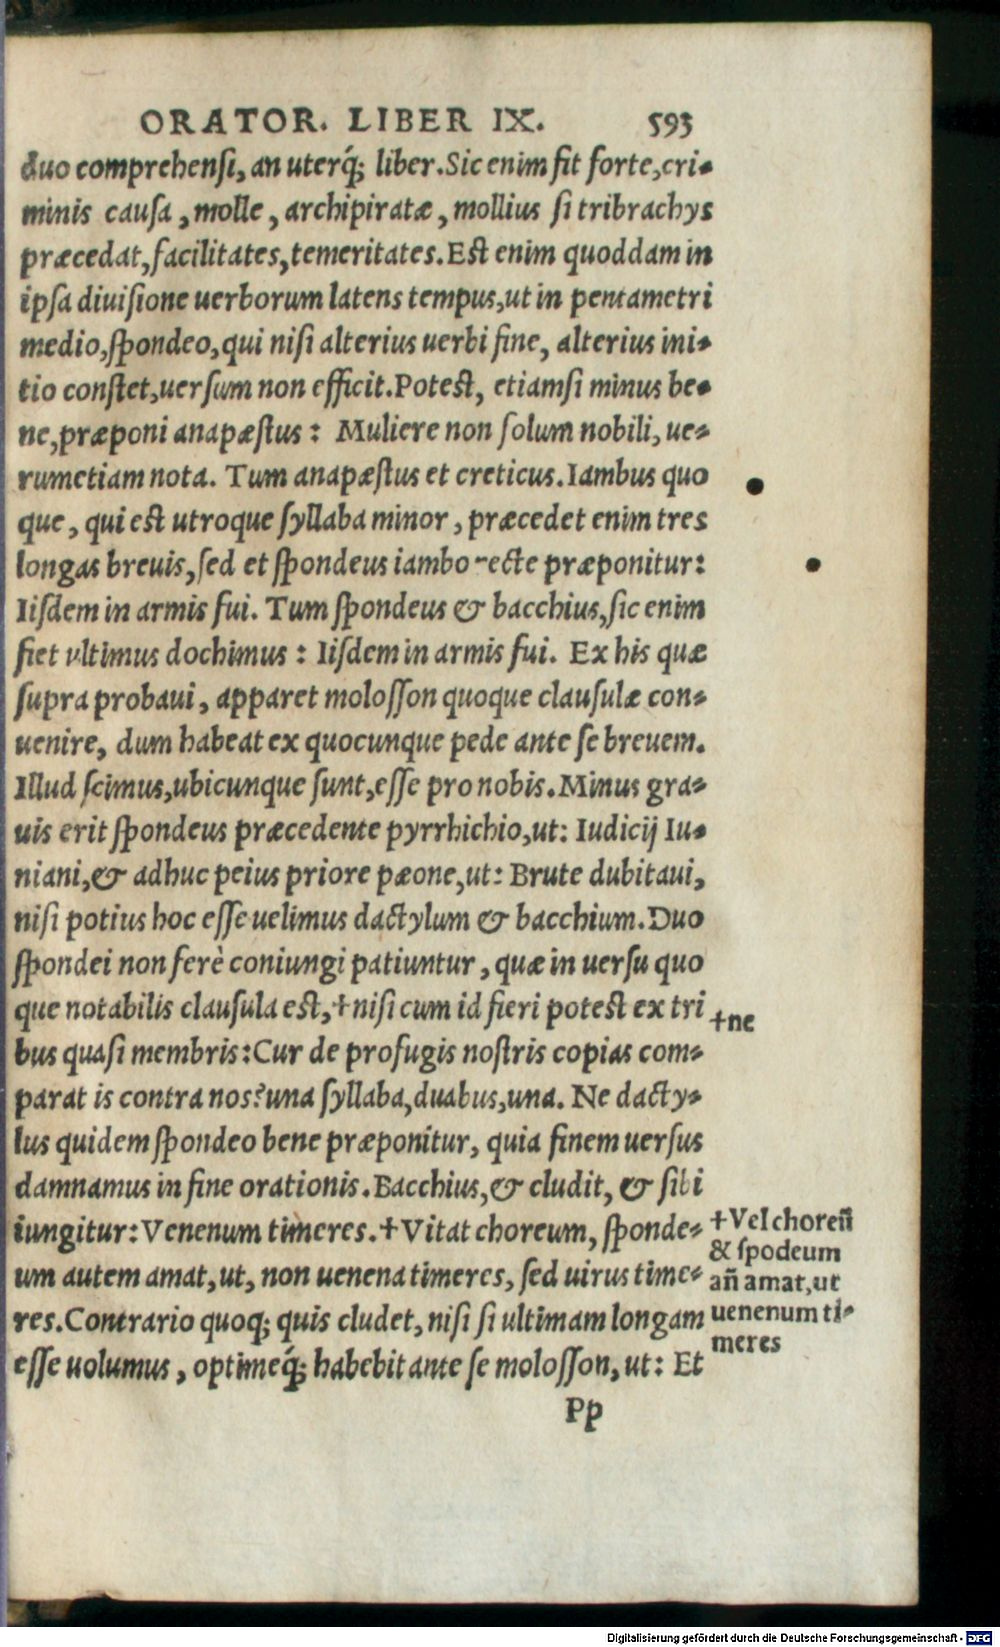 ORATOR. LIBER IX. 593
duo comprehensi, an uterq́; liber. Sic enim fit forte, cri-
minis causa, molle, archipiratæ, mollius si tribrachys
præcedat, facilitates, temeritates. Est enim quoddam in
ipsa diuisione uerborum latens tempus, ut in pentametri
medio, spondeo, qui nisi alterius uerbi fine, alterius ini-
tio constet, uersum non efficit. Potest, etiamsi minus be-
ne, præponi anapæstus: Muliere non solum nobili, ue-
rumetiam nota. Tum anapæstus et creticus. Iambus quo
que, qui est utroque syllaba minor, præcedet enim tres
longas breuis, sed et spondeus iambo recte præponitur:
Iisdem in armis fui. Tum spondeus & bacchius, sic enim
fiet ultimus dochimus: Iisdem in armis fui. Ex his quæ
supra probaui, apparet molosson quoque clausulæ con-
uenire, dum habeat ex quocunque pede ante se breuem.
Illud scimus, ubicunque sunt, esse pro nobis. Minus gra-
uis erit spondeus præcedente pyrrhichio, ut: Iudicij Iu-
niani, & adhuc peius priore pæone, ut: Brute dubitaui,
nisi potius hoc esse uelimus dactylum & bacchium. Duo
spondei non ferè coniungi patiuntur, quæ in uersu quo
que notabilis clausula est, †nisi cum id fieri potest ex tri
†ne
bus quasi membris: Cur de profugis nostris copias com-
parat is contra nos? una syllaba, duabus, una. Ne dacty-
lus quidem spondeo bene præponitur, quia finem uersus
damnamus in fine orationis. Bacchius, & cludit, & sibi
iungitur: Venenum timeres. †Vitat choreum, sponde-
um autem amat, ut, non uenena timeres, sed uirus time-
res. Contrario quoq; quis cludet, nisi si ultimam longam
esse uolumus, optimeq́; habebit ante se molosson, ut: Et
†Vel choreũ
& spodeum
añ amat, ut
uenenum ti-
meres
Pp
Digitalisierung gefördert durch die Deutsche Forschungsgemeinschaft - DFG